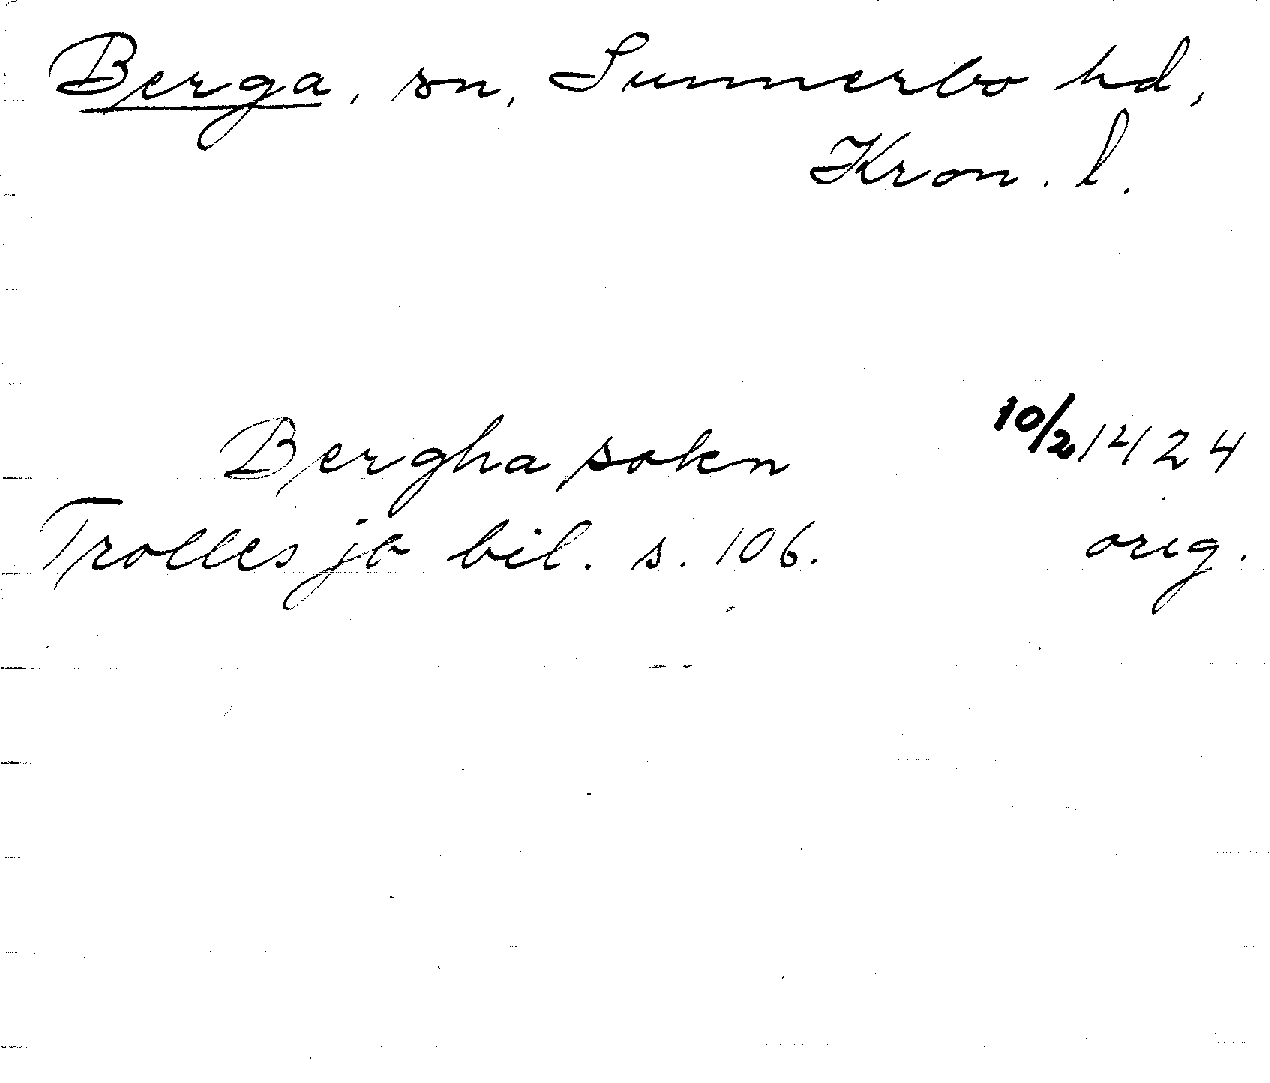 Berga, sn, Sunnerbo hd,
Kron. l.
Bergha sokn 10/2 1424
Trolles jb bil. s. 106. orig.